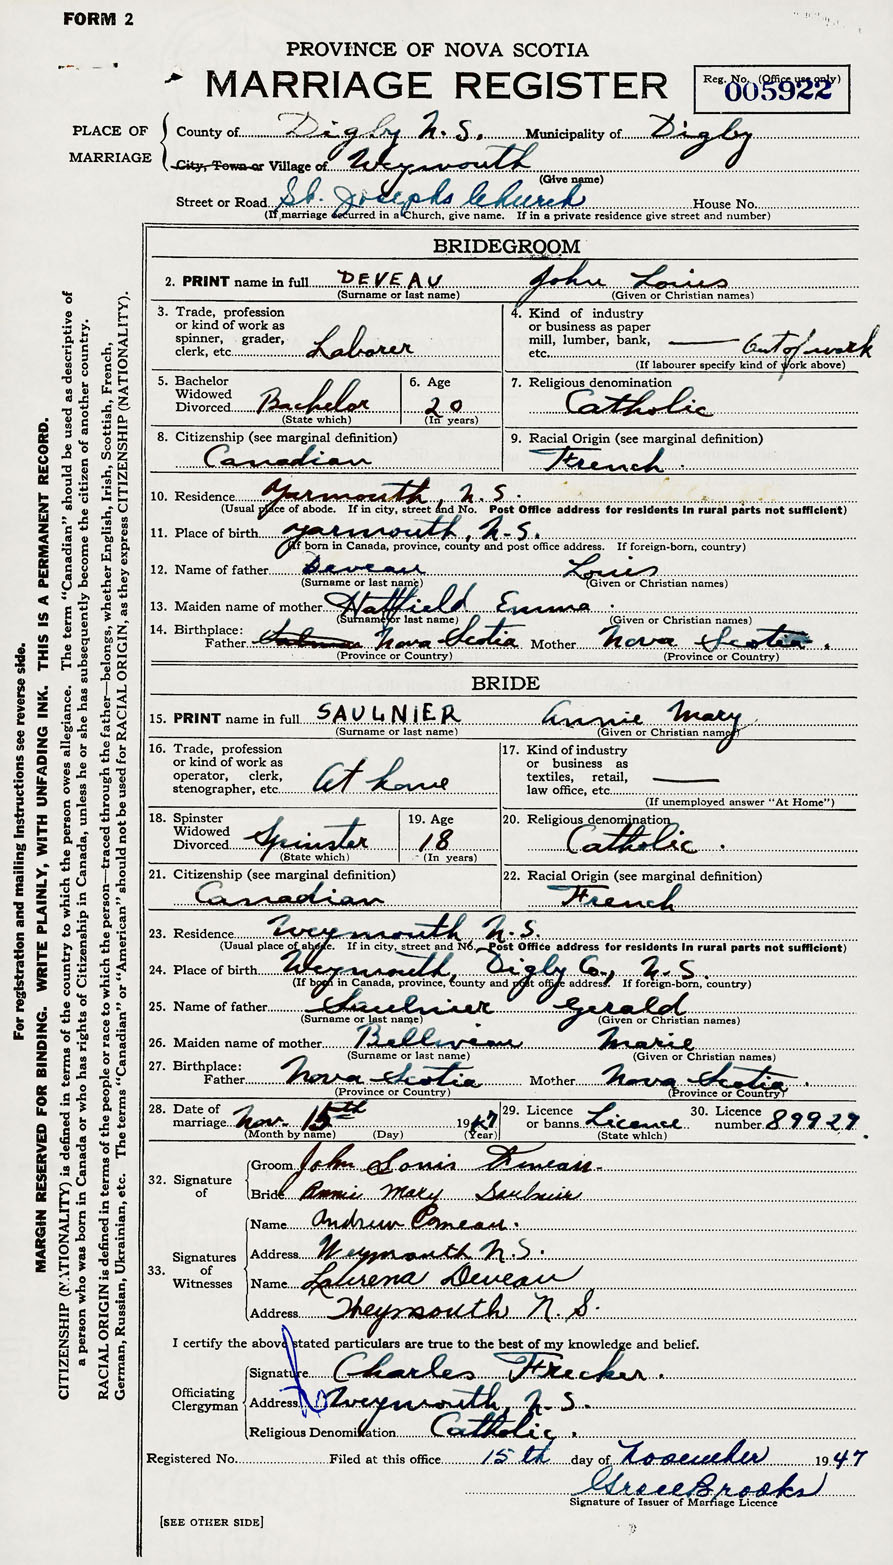 FORM 2
PROVINCE OF NOVA SCOTIA
MARRIAGE REGISTER
Reg. No. (Office use only)
005922
PLACE OF MARRIAGE
County of Digby N.S. Municipality of Digby
City, Town or Village of Weymouth
(Give name)
Street or Road St. Josephs Church House No.
(If marriage occurred in a Church, give name. If in a private residence give street and number)
BRIDEGROOM
2. PRINT name in full DEVEAU John Louis
(Surname or last name) (Given or Christian names)
3. Trade, profession or kind of work as spinner, grader, clerk, etc. Laborer
4. Kind of industry or business as paper mill, lumber, bank, etc. — Out of work
(If labourer specify kind of work above)
5. Bachelor Widowed Divorced Bachelor
(State which)
6. Age 20
(In years)
7. Religious denomination Catholic
8. Citizenship (see marginal definition) Canadian
9. Racial Origin (see marginal definition) French.
10. Residence Yarmouth, N.S.
(Usual place of abode. If in city, street and No. Post Office address for residents in rural parts not sufficient)
11. Place of birth Yarmouth, N.S.
(If born in Canada, province, county and post office address. If foreign-born, country)
12. Name of father Deveau Louis
(Surname or last name) (Given or Christian names)
13. Maiden name of mother Hatfield Emma.
(Surname or last name) (Given or Christian names)
14. Birthplace: Father Nova Scotia Mother Nova Scotia.
(Province or Country) (Province or Country)
BRIDE
15. PRINT name in full SAULNIER Annie Mary
(Surname or last name) (Given or Christian name)
16. Trade, profession or kind of work as operator, clerk, stenographer, etc. At home
17. Kind of industry or business as textiles, retail, law office, etc. —
(If unemployed answer "At Home")
18. Spinster Widowed Divorced Spinster
(State which)
19. Age 18
(In years)
20. Religious denomination Catholic.
21. Citizenship (see marginal definition) Canadian
22. Racial Origin (see marginal definition) French
23. Residence Weymouth N.S.
(Usual place of abode. If in city, street and No. Post Office address for residents in rural parts not sufficient)
24. Place of birth Weymouth, Digby Co., N.S.
(If born in Canada, province, county and post office address. If foreign-born, country)
25. Name of father Saulnier Gerald
(Surname or last name) (Given or Christian names)
26. Maiden name of mother Belliveau Marie
(Surname or last name) (Given or Christian names)
27. Birthplace: Father Nova Scotia Mother Nova Scotia.
(Province or Country) (Province or Country)
28. Date of marriage Nov. 15th 1947
(Month by name) (Day) (Year)
29. Licence or banns Licence
(State which)
30. Licence number 89927.
32. Signature of
Groom John Louis Deveau
Bride Annie Mary Saulnier
33. Signatures of Witnesses
Name Andrew Comeau.
Address Weymouth N.S.
Name Laurena Deveau
Address Weymouth N.S.
I certify the above stated particulars are true to the best of my knowledge and belief.
Officiating Clergyman
Signature Charles Frecker.
Address Weymouth, N.S.
Religious Denomination Catholic.
Registered No. Filed at this office 15th day of November 1947
Grace Brooks
Signature of Issuer of Marriage Licence
[SEE OTHER SIDE]
For registration and mailing instructions see reverse side.
MARGIN RESERVED FOR BINDING. WRITE PLAINLY, WITH UNFADING INK. THIS IS A PERMANENT RECORD.
CITIZENSHIP (NATIONALITY) is defined in terms of the country to which the person owes allegiance. The term "Canadian" should be used as descriptive of
a person who was born in Canada or who has rights of Citizenship in Canada, unless he or she has subsequently become the citizen of another country.
RACIAL ORIGIN is defined in terms of the people or race to which the person—traced through the father—belongs, whether English, Irish, Scottish, French,
German, Russian, Ukrainian, etc. The terms "Canadian" or "American" should not be used for RACIAL ORIGIN, as they express CITIZENSHIP (NATIONALITY).